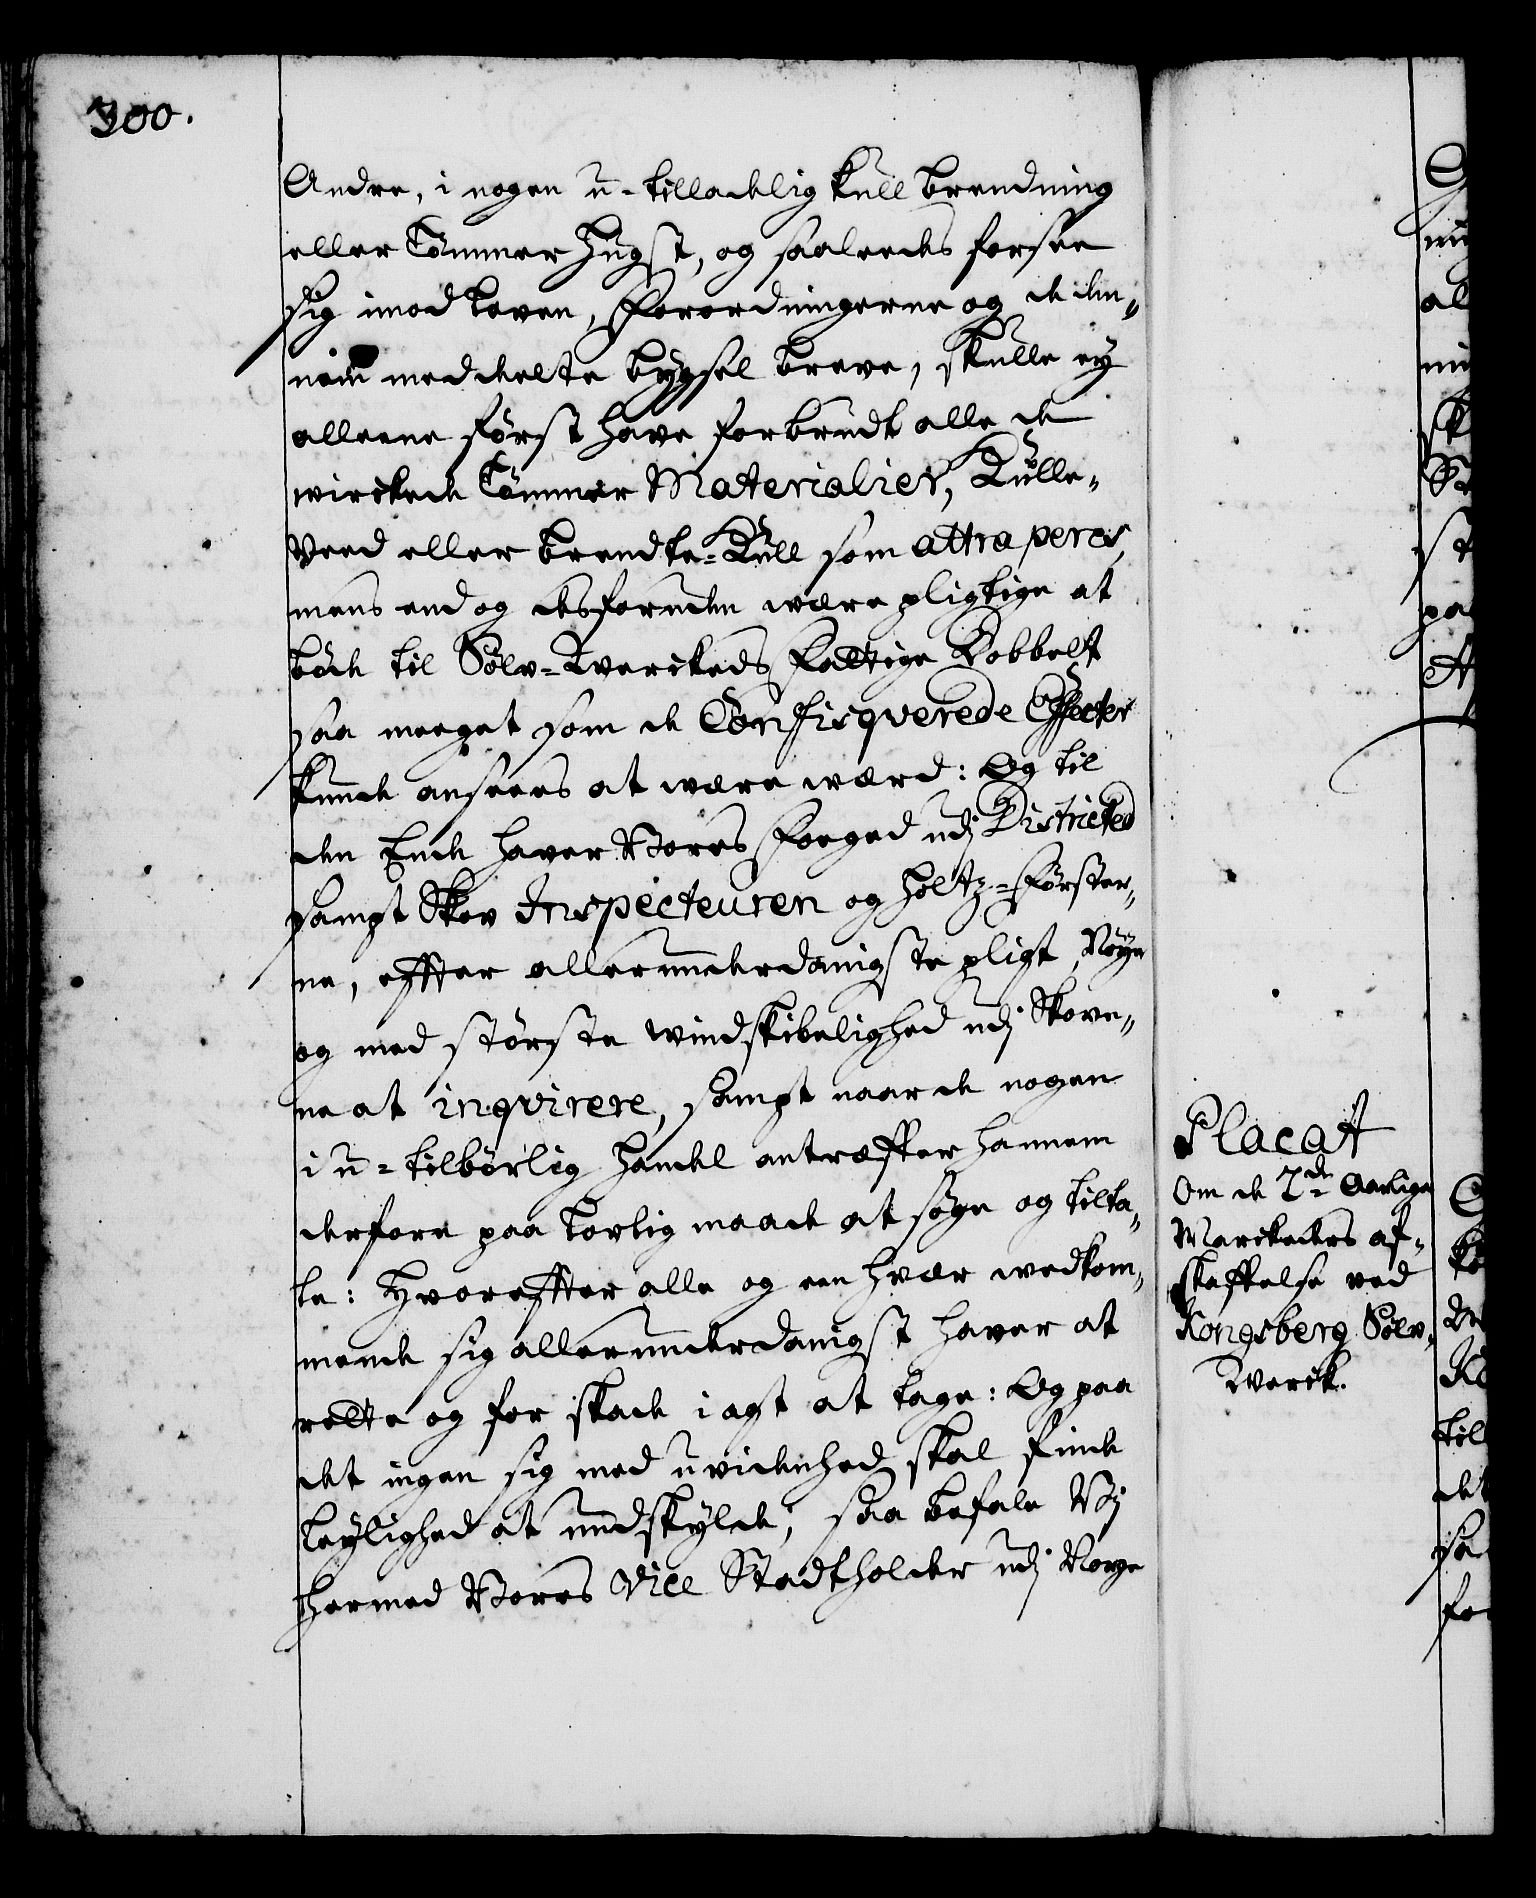 300.
Andre, i nogen u-tilladelig Kull brendning
eller Tömmer hugst, og saaledes forsee
sig imod loven, Forordningerne og de dem¬
nem meddeelte bygsel breve, skulle ey
alleene først have forbrudt alle de
wirckede Tömmer Materialier, Kulle¬
Veed eller brendte-Kull som attraperes,
mens endog desforuden være pligtige at
böde til Sölv-Werckeds Fattige Dobbelt
saa meeget som de Confisqverede Effecter
kunde ansees at være værd: Og til
den Ende haver Vores Foeged udj Districted
sampt Skov Inspecteuren og Holtz-Förster¬
ne, effter allerunderdanigste pligt, Nöye
og med störste windskibelighed udj Skove¬
ne at inqvirere, sampt naar de nogen
i u-tilbörlig handel antræffer hannem
derfore paa lovlig maade at söge og tilta¬
le: Hvoreffter alle og een hvær wedkom¬
mende sig allerunderdanigst haver at
rette og for skade i agt at tage: Og paa
det ingen sig med uvidenhed skal finde
leylighed at undskylde, saa befale Vj
hermed Vores Vice Stadtholder udj Norge
Placat
Om de 2de Aarlige
Marckeders af¬
skaffelse ved
Kongsberg Sölv¬
Werck.